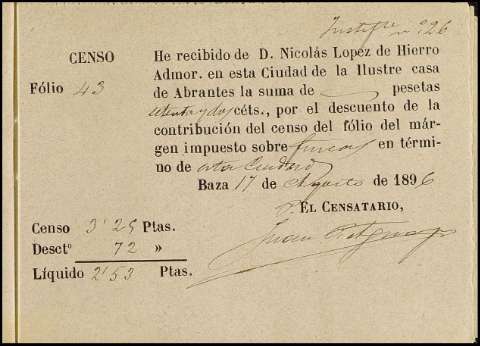 Justifte nº 26
CENSO
Fólio 43
He recibido de D. Nicolás Lopez de Hierro
Admor. en esta Ciudad de la Ilustre casa
de Abrantes la suma de pesetas
setenta y dos céts., por el descuento de la
contribución del censo del fólio del már-
gen impuesto sobre fincas en térmi-
no de esta Ciudad
Baza 17 de Agosto de 1896
EL CENSATARIO,
Juan
Censo 3'25 Ptas.
Desctº 72 »
Líquido 2'53 Ptas.